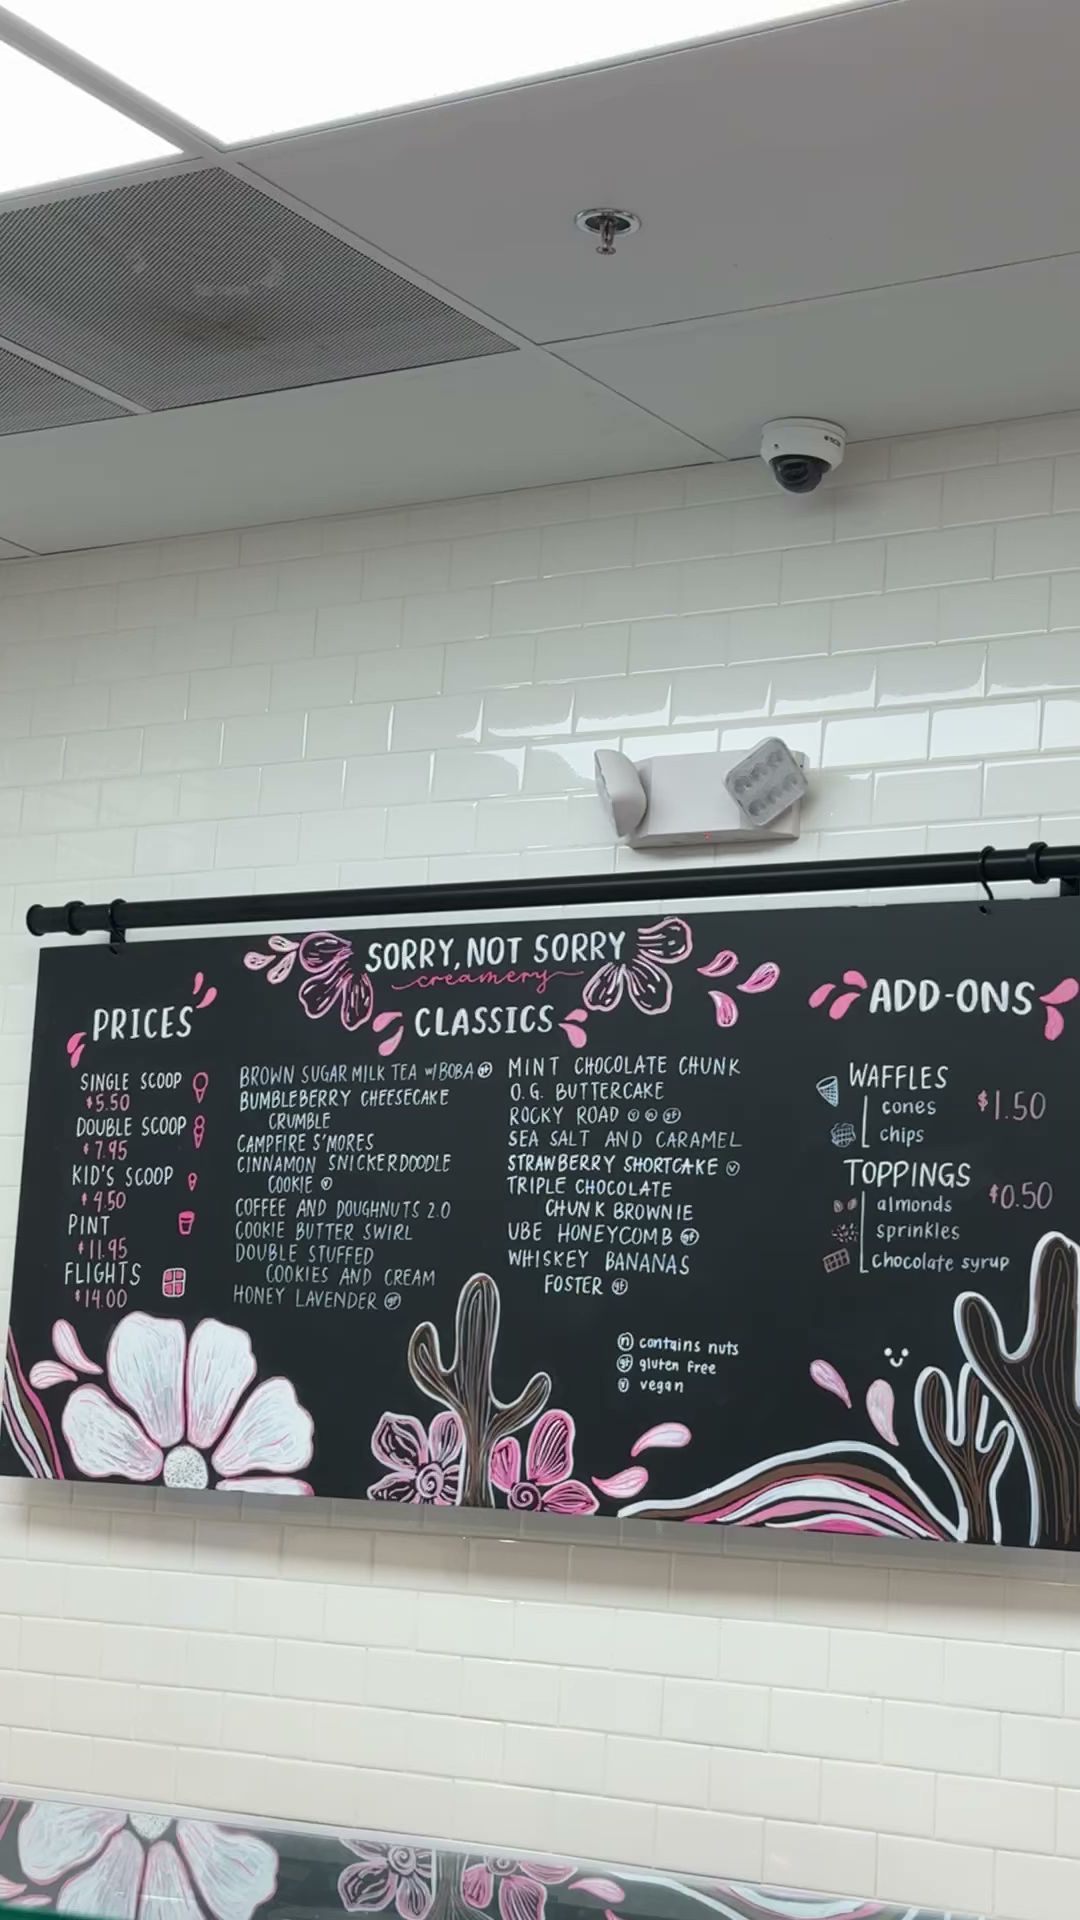 SORRY, NOT SORRY
creamery
PRICES
SINGLE SCOOP
$5.50
DOUBLE SCOOP
$7.95
KID'S SCOOP
$4.50
PINT
$11.95
FLIGHTS
$14.00
CLASSICS
BROWN SUGAR MILK TEA w/BOBA gf
BUMBLEBERRY CHEESECAKE
CRUMBLE
CAMPFIRE S'MORES
CINNAMON SNICKERDOODLE
COOKIE v
COFFEE AND DOUGHNUTS 2.0
COOKIE BUTTER SWIRL
DOUBLE STUFFED
COOKIES AND CREAM
HONEY LAVENDER gf
MINT CHOCOLATE CHUNK
O.G. BUTTERCAKE
ROCKY ROAD v n gf
SEA SALT AND CARAMEL
STRAWBERRY SHORTCAKE v
TRIPLE CHOCOLATE
CHUNK BROWNIE
UBE HONEYCOMB gf
WHISKEY BANANAS
FOSTER gf
n contains nuts
gf gluten free
v vegan
ADD-ONS
WAFFLES
cones $1.50
chips
TOPPINGS
almonds $0.50
sprinkles
chocolate syrup